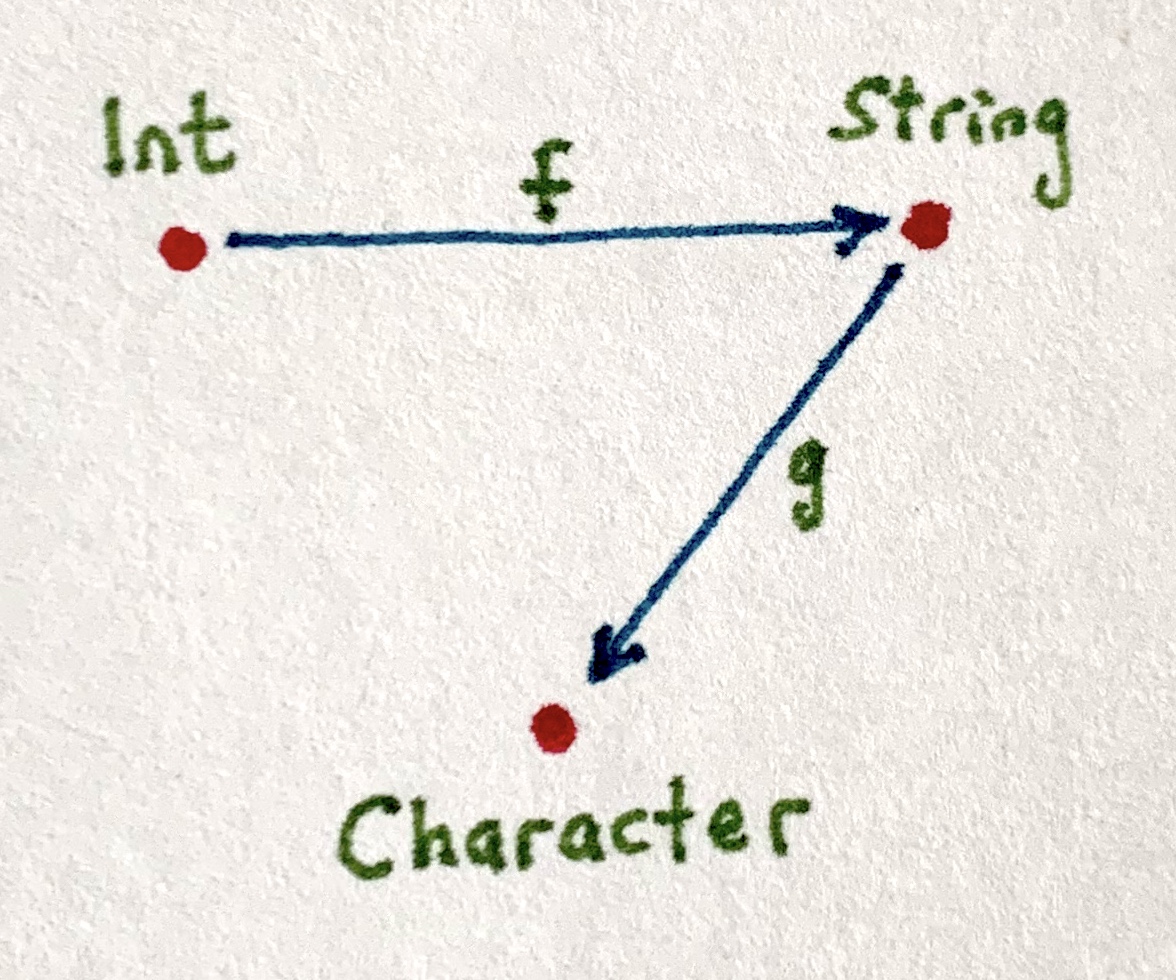 Int
f
String
g
Character